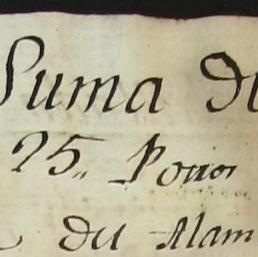 Suma de
25,, Potros
du Alam